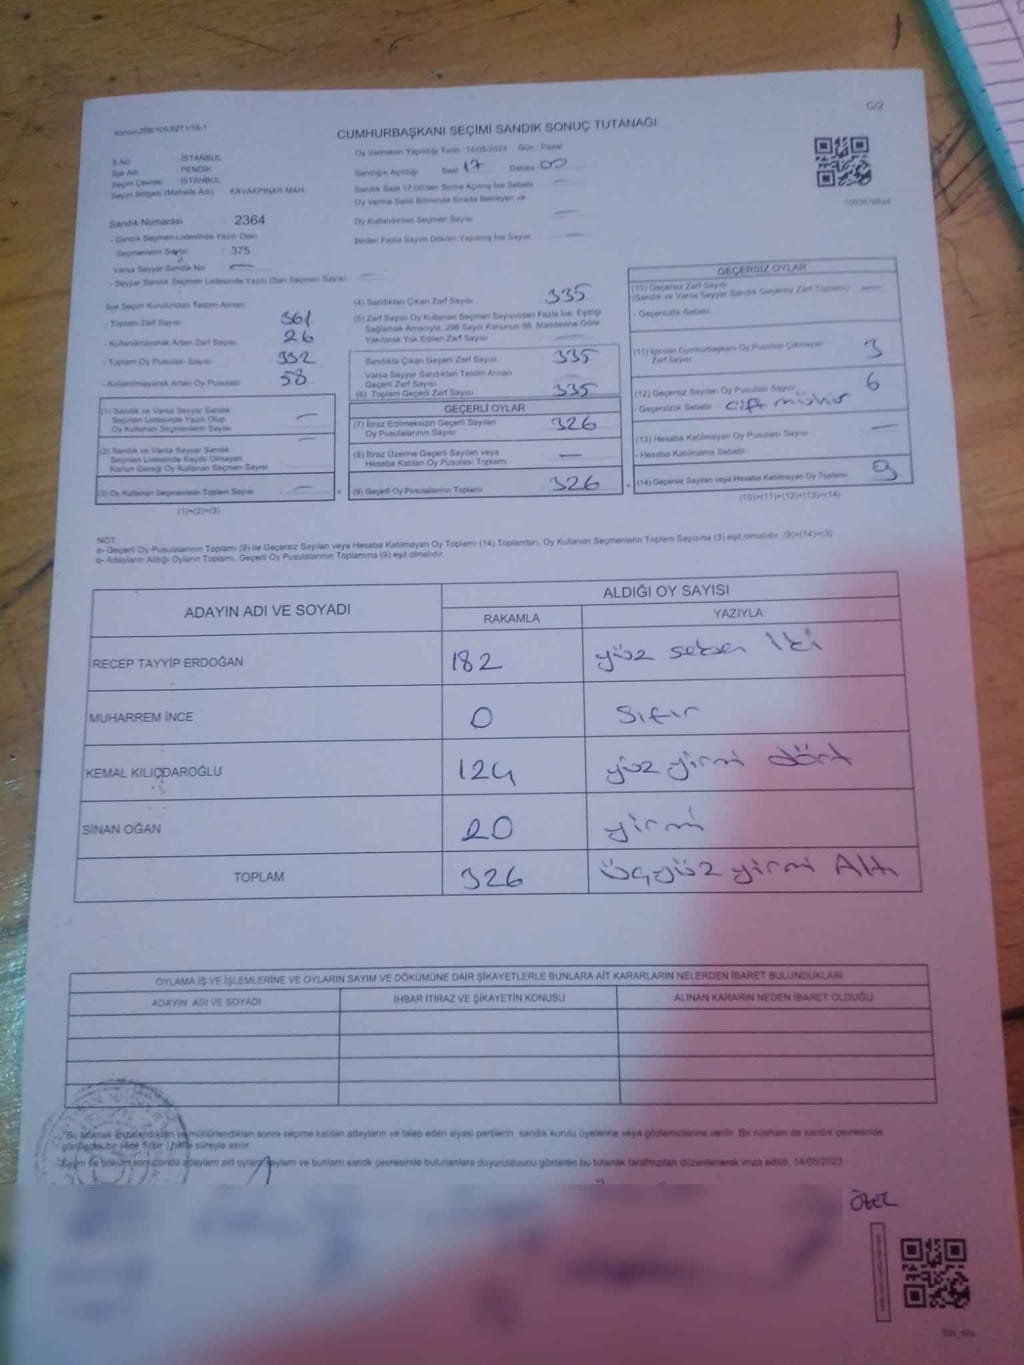 C/2
CUMHURBAŞKANI SEÇİMİ SANDIK SONUÇ TUTANAĞI
İl Adı İSTANBUL
İlçe Adı PENDİK
Seçim Çevresi İSTANBUL
Seçim Bölgesi (Mahalle Adı) KAVAKPINAR MAH.
Oy Vermenin Yapıldığı Tarih : 14/05/2023 Gün : Pazar
Sandığın Açıldığı Saat 17 Dakika 00
Sandık Saat 17:00'den Sonra Açılmış İse Sebebi —
Oy Verme Saati Bitiminde Sırada Bekleyen ve
Oy Kullandırılan Seçmen Sayısı —
Birden Fazla Sayım Döküm Yapılmış İse Sayısı —
Sandık Numarası : 2364
- Sandık Seçmen Listesinde Yazılı Olan
Seçmenlerin Sayısı : 375
Varsa Seyyar Sandık No —
- Seyyar Sandık Seçmen Listesinde Yazılı Olan Seçmen Sayısı —
İlçe Seçim Kurulundan Teslim Alınan
- Toplam Zarf Sayısı 361
- Kullanılmayarak Artan Zarf Sayısı 26
- Toplam Oy Pusulası Sayısı
- Kullanılmayarak Artan Oy Pusulası 58
(1) Sandık ve Varsa Seyyar Sandık
Seçmen Listesinde Yazılı Olup
Oy Kullanan Seçmenlerin Sayısı —
(2) Sandık ve Varsa Seyyar Sandık
Seçmen Listesinde Kayıtlı Olmayan
Kanun Gereği Oy Kullanan Seçmen Sayısı —
(3) Oy Kullanan Seçmenlerin Toplam Sayısı —
(1)+(2)=(3)
(4) Sandıktan Çıkan Zarf Sayısı 335
(5) Zarf Sayısı Oy Kullanan Seçmen Sayısından Fazla İse, Eşitliği
Sağlamak Amacıyla, 298 Sayılı Kanunun 98. Maddesine Göre
Yakılarak Yok Edilen Zarf Sayısı —
Sandıkta Çıkan Geçerli Zarf Sayısı 335
Varsa Seyyar Sandıktan Teslim Alınan
Geçerli Zarf Sayısı —
(6) Toplam Geçerli Zarf Sayısı 335
GEÇERLİ OYLAR
(7) İtiraz Edilmeksizin Geçerli Sayılan
Oy Pusulalarının Sayısı 326
(8) İtiraz Üzerine Geçerli Sayılan veya
Hesaba Katılan Oy Pusulası Toplamı —
(9) Geçerli Oy Pusulalarının Toplamı 326
GEÇERSİZ OYLAR
(10) Geçersiz Zarf Sayısı —
(Sandık ve Varsa Seyyar Sandık Geçersiz Zarf Toplamı)
- Geçersizlik Sebebi
(11) İçinden Cumhurbaşkanı Oy Pusulası Çıkmayan
Zarf Sayısı 3
(12) Geçersiz Sayılan Oy Pusulası Sayısı 6
- Geçersizlik Sebebi çift mühür
(13) Hesaba Katılmayan Oy Pusulası Sayısı —
- Hesaba Katılmama Sebebi
(14) Geçersiz Sayılan veya Hesaba Katılmayan Oy Toplamı 9
(10)+(11)+(12)+(13)=(14)
NOT:
a- Geçerli Oy Pusulalarının Toplamı (9) ile Geçersiz Sayılan veya Hesaba Katılmayan Oy Toplamı (14) Toplamları, Oy Kullanan Seçmenlerin Toplam Sayısına (3) eşit olmalıdır. (9)+(14)=(3)
b- Adayların Aldığı Oyların Toplamı, Geçerli Oy Pusulalarının Toplamına (9) eşit olmalıdır.
ADAYIN ADI VE SOYADI ALDIĞI OY SAYISI
RAKAMLA YAZIYLA
RECEP TAYYİP ERDOĞAN 182 yüz seksen iki
MUHARREM İNCE 0 Sıfır
KEMAL KILIÇDAROĞLU 124 yüz yirmi dört
SİNAN OĞAN 20 yirmi
TOPLAM 326 Üçyüz yirmi Altı
OYLAMA İŞ VE İŞLEMLERİNE VE OYLARIN SAYIM VE DÖKÜMÜNE DAİR ŞİKAYETLERLE BUNLARA AİT KARARLARIN NELERDEN İBARET BULUNDUKLARI
ADAYIN ADI VE SOYADI İHBAR İTİRAZ VE ŞİKAYETİN KONUSU ALINAN KARARIN NEDEN İBARET OLDUĞU
sonra seçime katılan adayların ve talep eden siyasi partilerin sandık kurulu üyelerine veya gözlemcilerine verilir. Bir nüshası da sandık çevresinde
süreyle asılır.
ve bunların sandık çevresinde bulunanlara duyurulduğunu gösteren bu tutanak tarafımızdan düzenlenerek imza edildi. 14/05/2023